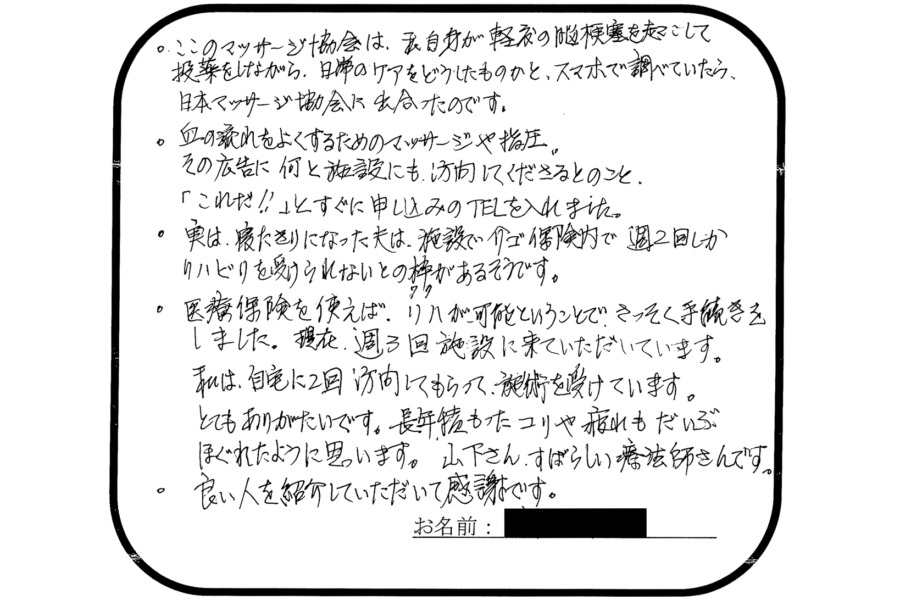 。ここのマッサージ協会は、私自身が軽度の脳梗塞を起こして
投薬をしながら、日常のケアをどうしたものかと、スマホで調べていたら、
日本マッサージ協会に出会ったのです。
。血の流れをよくするためのマッサージや指圧。
その広告に何と施設にも訪問してくださるとのこと、
「これだ!!」とすぐに申し込みのTELを入れました。
。実は、寝たきりになった夫は、施設で介ゴ保険内で週2回しか
リハビリを受けられないとの枠があるそうです。
ワク
。医療保険を使えば、リハが可能ということで、さっそく手続きを
しました。現在、週3回施設に来ていただいています。
私は、自宅に2回訪問してもらって、施術を受けています。
とてもありがたいです。長年積もったコリや疲れもだいぶ
ほぐれたように思います。山下さん、すばらしい療法師さんです。
。良い人を紹介していただいて感謝です。
お名前: